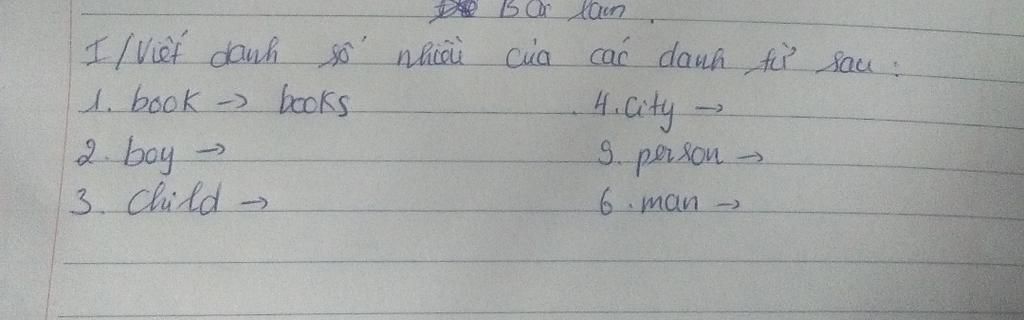 Bài làm.
I/Viết danh số nhiều của các danh từ sau:
1. book → books 4. city →
2. boy → 5. person →
3. child → 6. man →